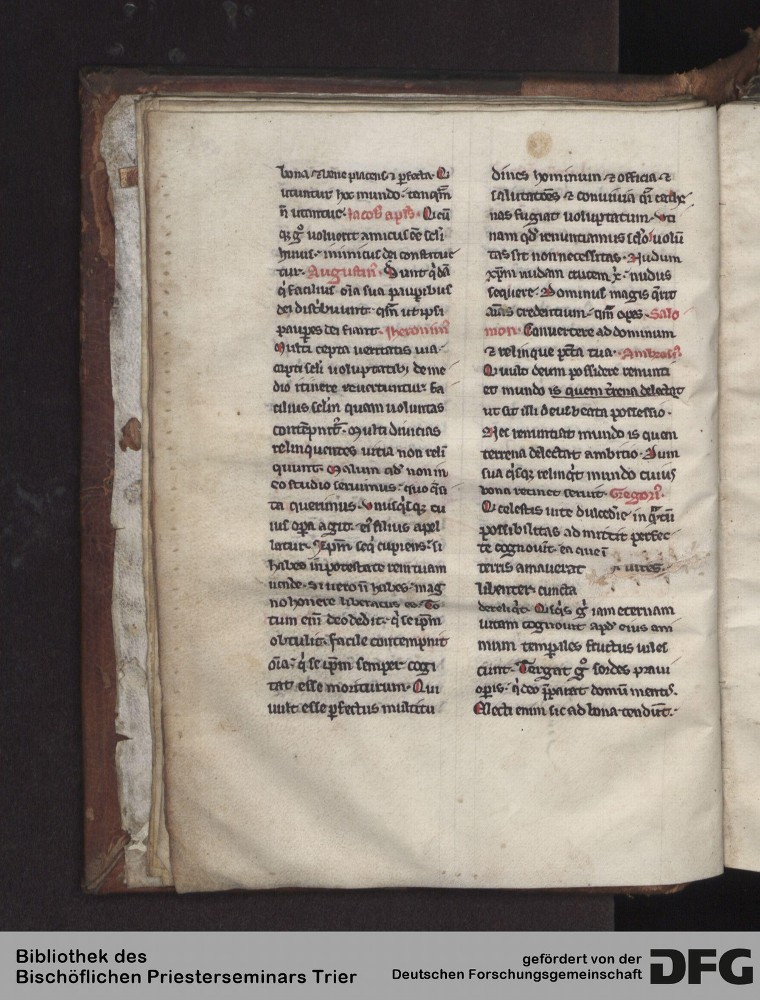 bona ⁊ bene placens ⁊ ꝑfecta. Q
utuntur hoc mundo. tanqm̄
n̄ utantur. Iacob apłs. Qcū
qꝫ gͦ voluerit amicus ēē scłi
huius. inimicus dei constitue
tur. Augustinꝰ. Sunt qͥdā
qͥ facilius oīa sua pauꝑibus
dei distͥbuunt. qͣm ut ipsi
pauꝑes dei fiant. Iheronimꝰ
Multi cepta ueritatis uia.
capti scłi uoluptatibꝫ de me
dio itinere reuertuntur. Fa
cilius scłm quam uoluntas
contēpnit͛. Multi diuicias
relinquentes uitia non reli
quunt. Malum id non in
eo studio seruimus. quo qͥsi
ta querimus. Vnusqͥsqꝫ cu
ius oꝑa agit. eiꝰ filius apel
latur. Xp̄m seqͥ cupiens. si
habes in potestate rem tuam
uende. Si uero n̄ habes. mag
no honere liberatus es. To
tum eni deo dedit. qͥ se ip̄m
obtulit. Facile contempnit
oīa. qͥ se ip̄m semper cogi
tat esse moriturum. Qui
uult esse ꝑfectus multitu
dines hominum ⁊ officia ⁊
salutatōes ⁊ conuiuia qͣi cathe
nas fugiat uoluptatum. Vti
nam qd̓ renuntiamus scło. uolū
tas sit non necessitas. Nudum
xp̄m nudam crucem x̄. nudus
sequere. Dominus magis qͥrit
aīas credentium. qͣm opes. Salo
mon. Convertere ad dominum
⁊ relinque pctā tua. Ambrosiꝰ.
Q uult deum possidere renunti
et mundo. is quem tr̄ena delectat
ut sit illi deus beata possessio.
Nec renuntiat mundo is quem
terrena delectat ambitio. Dum
sua qͥsqꝫ relinqͥt mundo cuius
bona retinet seruit. Gregoriꝰ.
Q celestis uite dulcedīē in qͣtū
possibilitas admittit perfec
te cognouit. ea que ī
terris amauerat uires.
libenter cuncta
dereliqͥt. Qisqͥs gͦ iam eternam
uitam cognouit apd̓ eius ani
mum temꝑales fructus uiles
cunt. Tergat gͦ sordes praui
oꝑis. qͥ deo p̄parat domū mentis.
Electi enim sic ad bona tendūt.
Bibliothek des
Bischöflichen Priesterseminars Trier
gefördert von der
Deutschen Forschungsgemeinschaft
DFG